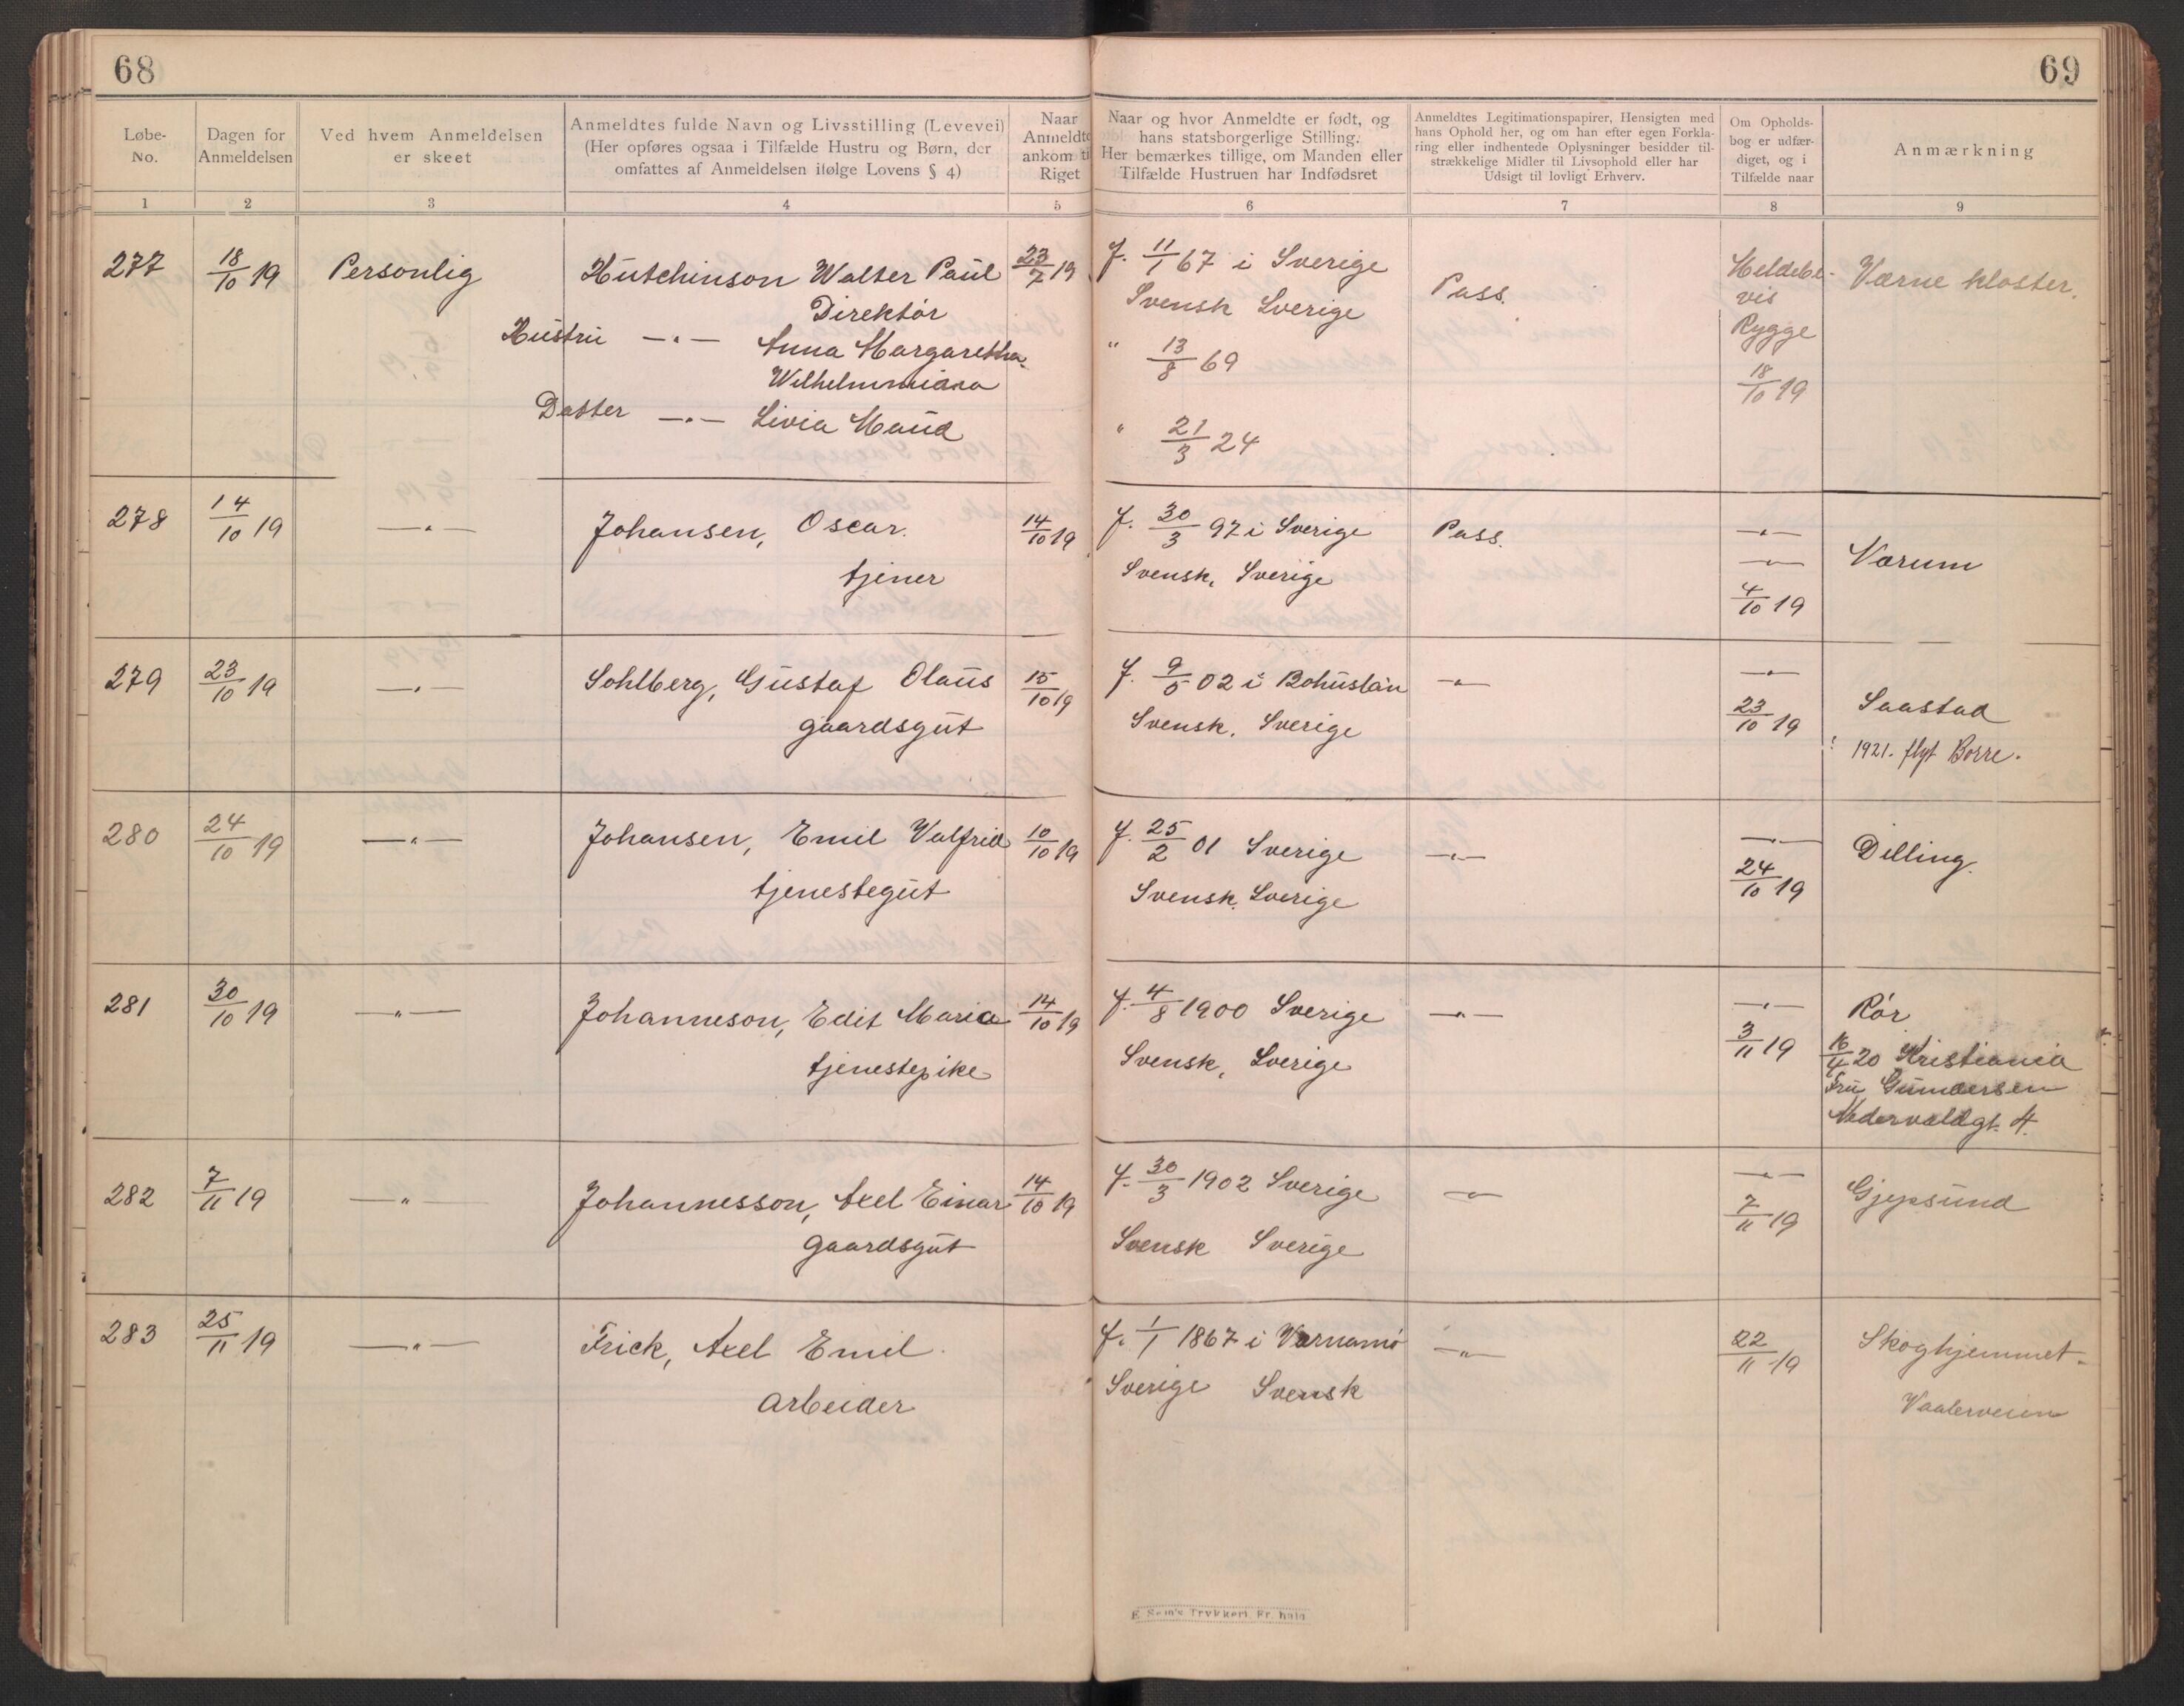 68
69
Løbe-
No.
Dagen for
Anmeldelsen
Ved hvem Anmeldelsen
er skeet
Anmeldtes fulde Navn og Livsstilling (Levevei)
(Her opføres ogsaa i Tilfælde Hustru og Børn, der
omfattes af Anmeldelsen ifølge Lovens § 4)
Naar
Anmeldte
ankom til
Riget
Naar og hvor Anmeldte er født, og
hans statsborgerlige Stilling.
Her bemærkes tillige, om Manden eller
Tilfælde Hustruen har Indfødsret
Anmeldtes Legitimationspapirer, Hensigten med
hans Ophold her, og om han efter egen Forkla-
ring eller indhentede Oplysninger besidder til-
strækkelige Midler til Livsophold eller har
Udsigt til lovligt Erhverv.
Om Opholds-
bog er udfær-
diget, og i
Tilfælde naar
Anmærkning
1 2 3 4 5 6 7 8 9
277 18/10 19 Personlig Hutchinson Walter Paul 23/7 19 f. 11/1 67 i Sverige Pass. Meldebe- Værne kloster.
Direktør Svensk Sverige vis
Hustru —"— Anna Margaretha " 13/8 69 Rygge
Wilhelmmiana 18/10 19
Datter —"— Livia Maud " 21/3 24
278 14/10 19 —"— Johansen, Oscar. 14/10 19 f. 30/3 97 i Sverige Pass. —"— Vorum
tjener Svensk, Sverige —"—
4/10 19
279 23/10 19 —"— Sohlberg, Gustaf Olaus 15/10 19 f. 9/5 02 i Bohuslän —"— —"— Saastad
gaardsgut Svensk, Sverige 23/10 19 1921. flyt Borre.
280 24/10 19 —"— Johansen, Emil Valfrid 10/10 19 f. 25/2 01 Sverige —"— —"— Dilling.
tjenestegut Svensk. Sverige 24/10 19
281 30/10 19 —"— Johanneson, Edit Maria 14/10 19 f. 4/8 1900 Sverige —"— —"— Rør
tjenestepike Svensk, Sverige 3/11 19 16/4 20 Kristiania
Fru Gundersen
Nedervoldgt. 4.
282 7/11 19 —"— Johannesson, Axel Einar 14/10 19 f. 30/3 1902 Sverige —"— —"— Gjepsund
gaardsgut Svensk Sverige 7/11 19
283 25/11 19 —"— Frick, Axel Emil. f. 1/1 1867 i Vernamo —"— 22/11 19 Skoghjemmet.
arbeider Sverige Svensk Vaalerveien
E Sem's Trykkeri, Fr. hald